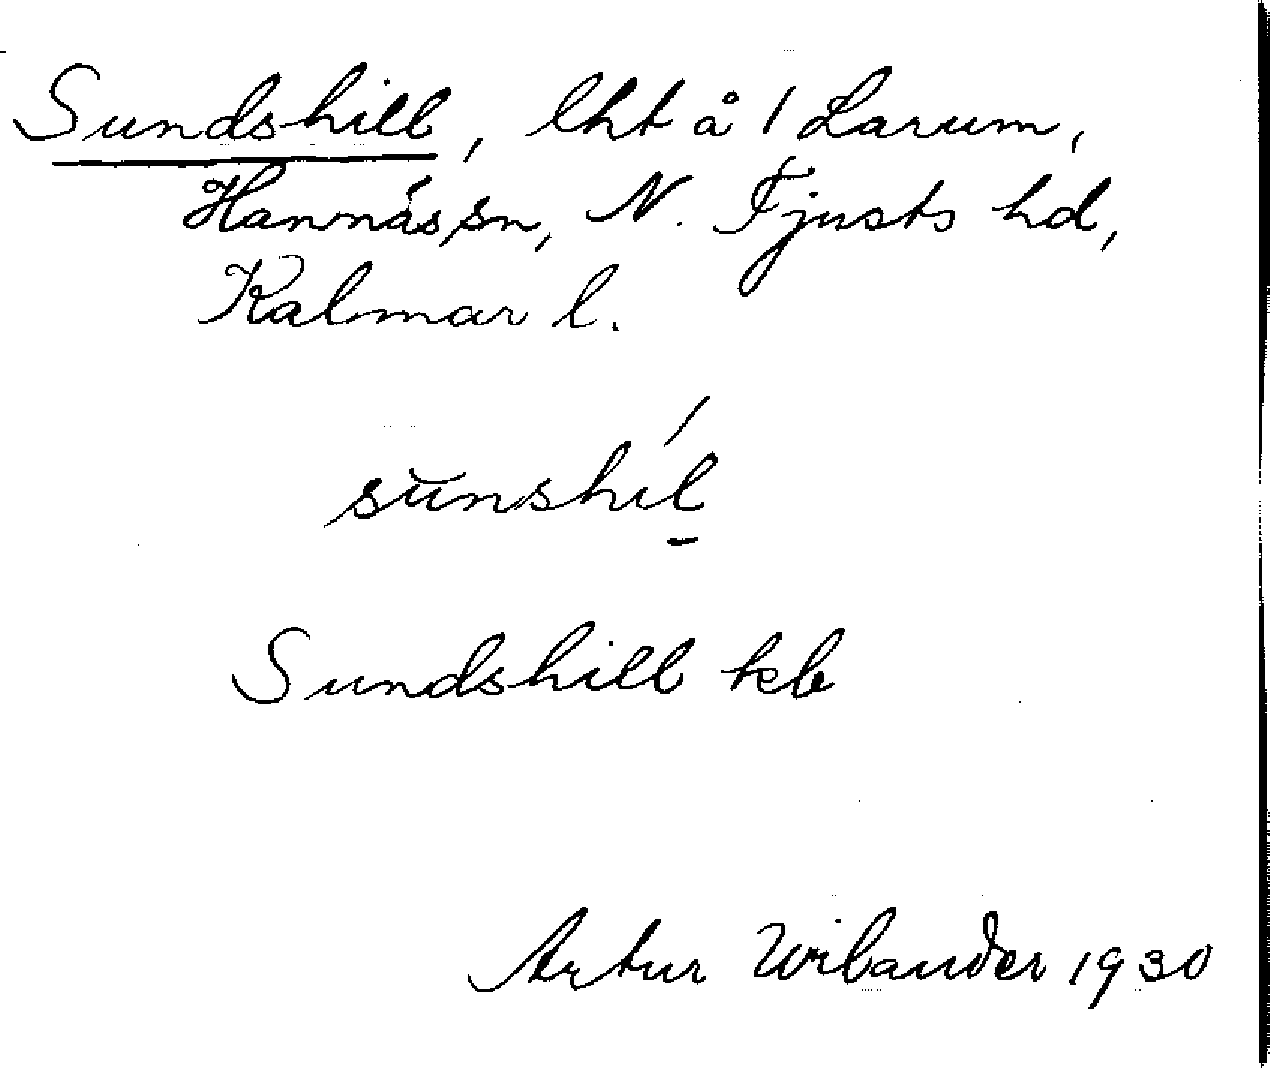 Sundshill, lht å 1 Larum,
Hannäs sn, N. Tjusts hd,
Kalmar l.
sunshil
Sundshill kb
Artur Wilander 1930